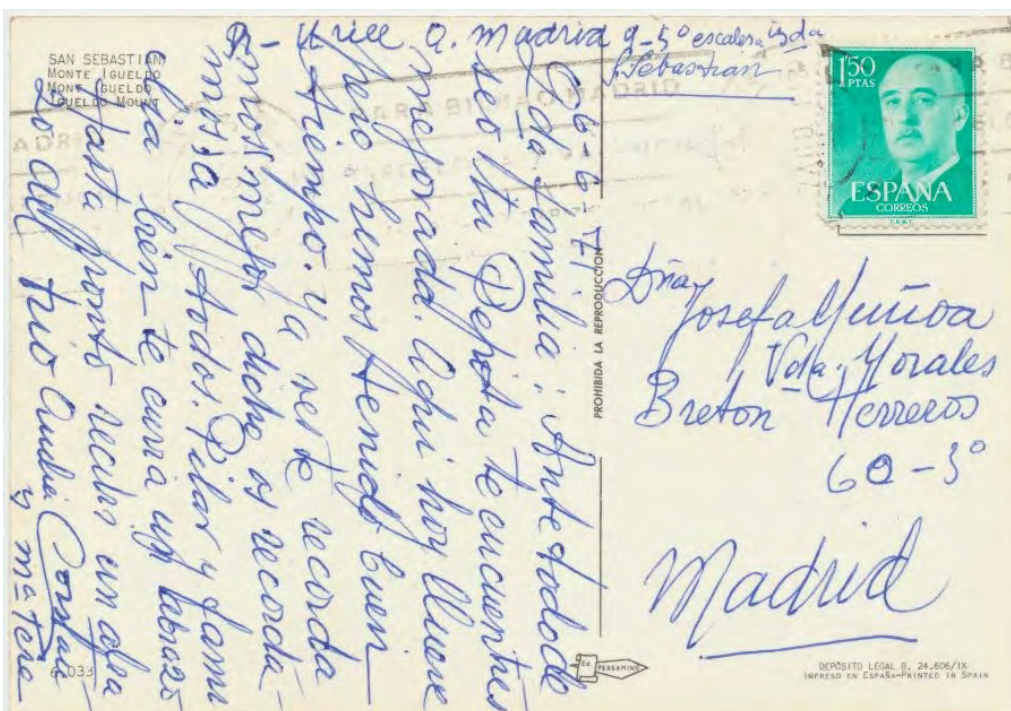 SAN SEBASTIAN
MONTE IGUELDO
MONT IGUELDO
IGUELDO MOUNT
R- a. madrid 9-5º escalera izda
S. Sebastian
1'50
PTAS
ESPAÑA
CORREOS
F.N.M.T.
6-6-71
Qda. familia: Ante todo de
seo tia Pepita te encuentres
mejorada. Aqui hoy llueve
pero hemos tenido buen
tiempo. ya ves te recorda
mos mejor dicho os recorda-
mos a todos. Pilar y fami
lia bien te envia un abrazo
Hasta pronto recibir un abra
zo del trio Amelia
y Mª Tere
PROHIBIDA LA REPRODUCCION
Dña Josefa Muñoa
Vda. Morales
Breton Herreros
60-3º
Madrid
6.033
Ed. PERGAMINO
DEPÓSITO LEGAL B. 24.606/IX
IMPRESO EN ESPAÑA-PRINTED IN SPAIN